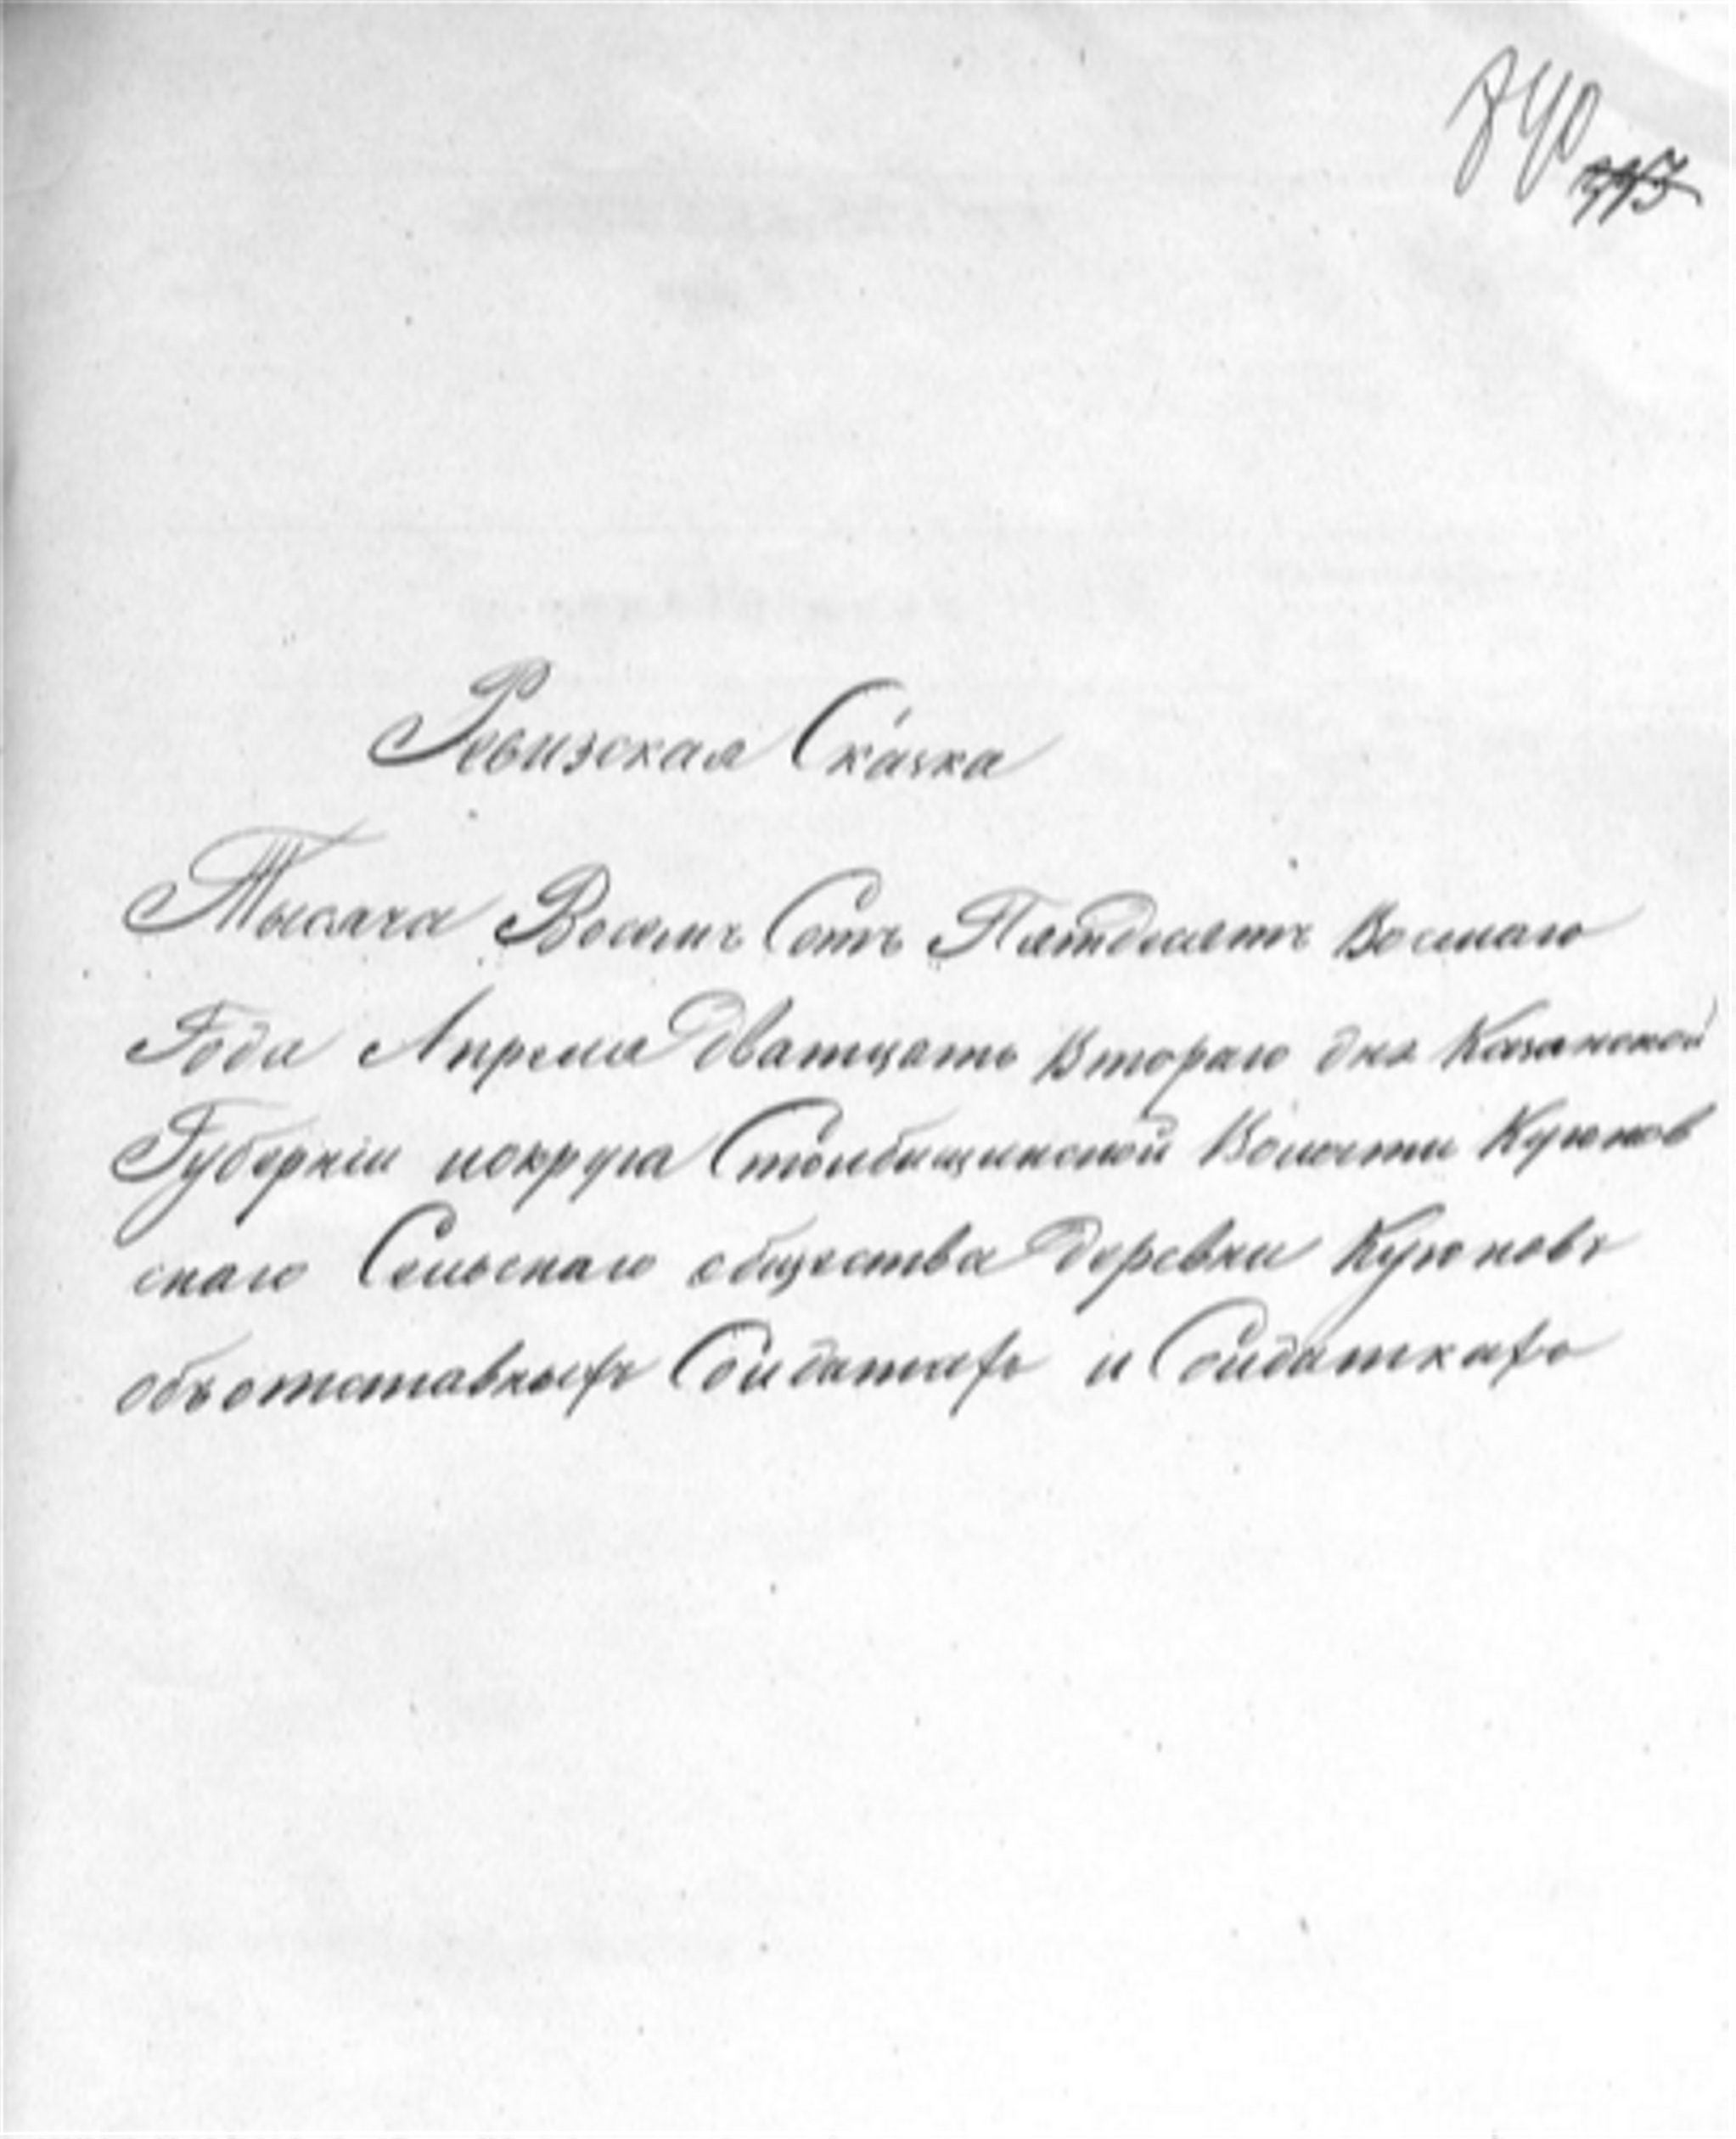 840
Ревизская Сказка
Тысяча Восемь Сотъ Пятдесятъ Восмаго
Года Апреля дватцать Втораго дня Казанской
Губерніи и округа Столбищинской Волости Куюков
скаго Сельскаго общества деревни Куюковъ
объ отставныхъ Солдатахъ и Солдаткахъ